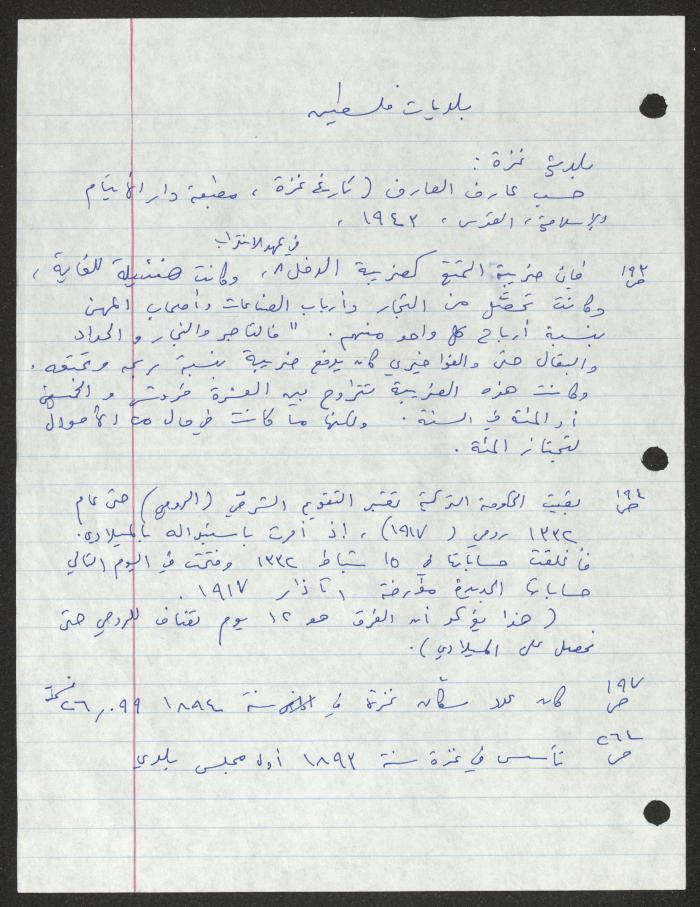 بلديات فلسطين
بلدية غزة :
حسب عارف العارف ( تاريخ غزة ، مطبعة دار الأيتام
الإسلامية ، القدس ، ١٩٤٣ ،
في عهد الانتداب
ص ١٩٣ فإن ضريبة التمتع كضريبة الدخل ٨، وكانت ضئيلة للغاية ،
وكانت تحصَّل من التجار وأرباب الصناعات وأصحاب المهن
بنسبة أرباح كل واحد منهم . " فالتاجر والنجار والحداد
والبقال حتى والفواخيري كان يدفع ضريبة بنسبة ربحه وتمتعه .
وكانت هذه الضريبة تتراوح بين العشرة قروش والخمسين
أو المئة في السنة . ولكنها ما كانت في حال من الأحوال
لتجتاز المئة .
ص ١٩٤ بقيت الحكومة التركية تعتبر التقويم الشرقي (الرومي) حتى عام
١٣٣٢ رومي ( ١٩١٧) ، إذ أمرت باستبداله بالميلادي .
فأغلقت حساباتها في ١٥ شباط ١٣٣٢ وفتحت في اليوم التالي
حساباتها الجديدة مؤرخة ١ آذار ١٩١٧ .
( هذا يؤكد أن الفرق هو ١٢ يوم تضاف للرومي حتى
نحصل على الميلادي ) .
ص ١٩٧ كان عدد سكان غزة في سنة ١٨٩٤ ٢٦,٠٩٩ نسمة
ص ٢٦٤ تأسس في غزة سنة ١٨٩٣ أول مجلس بلدي